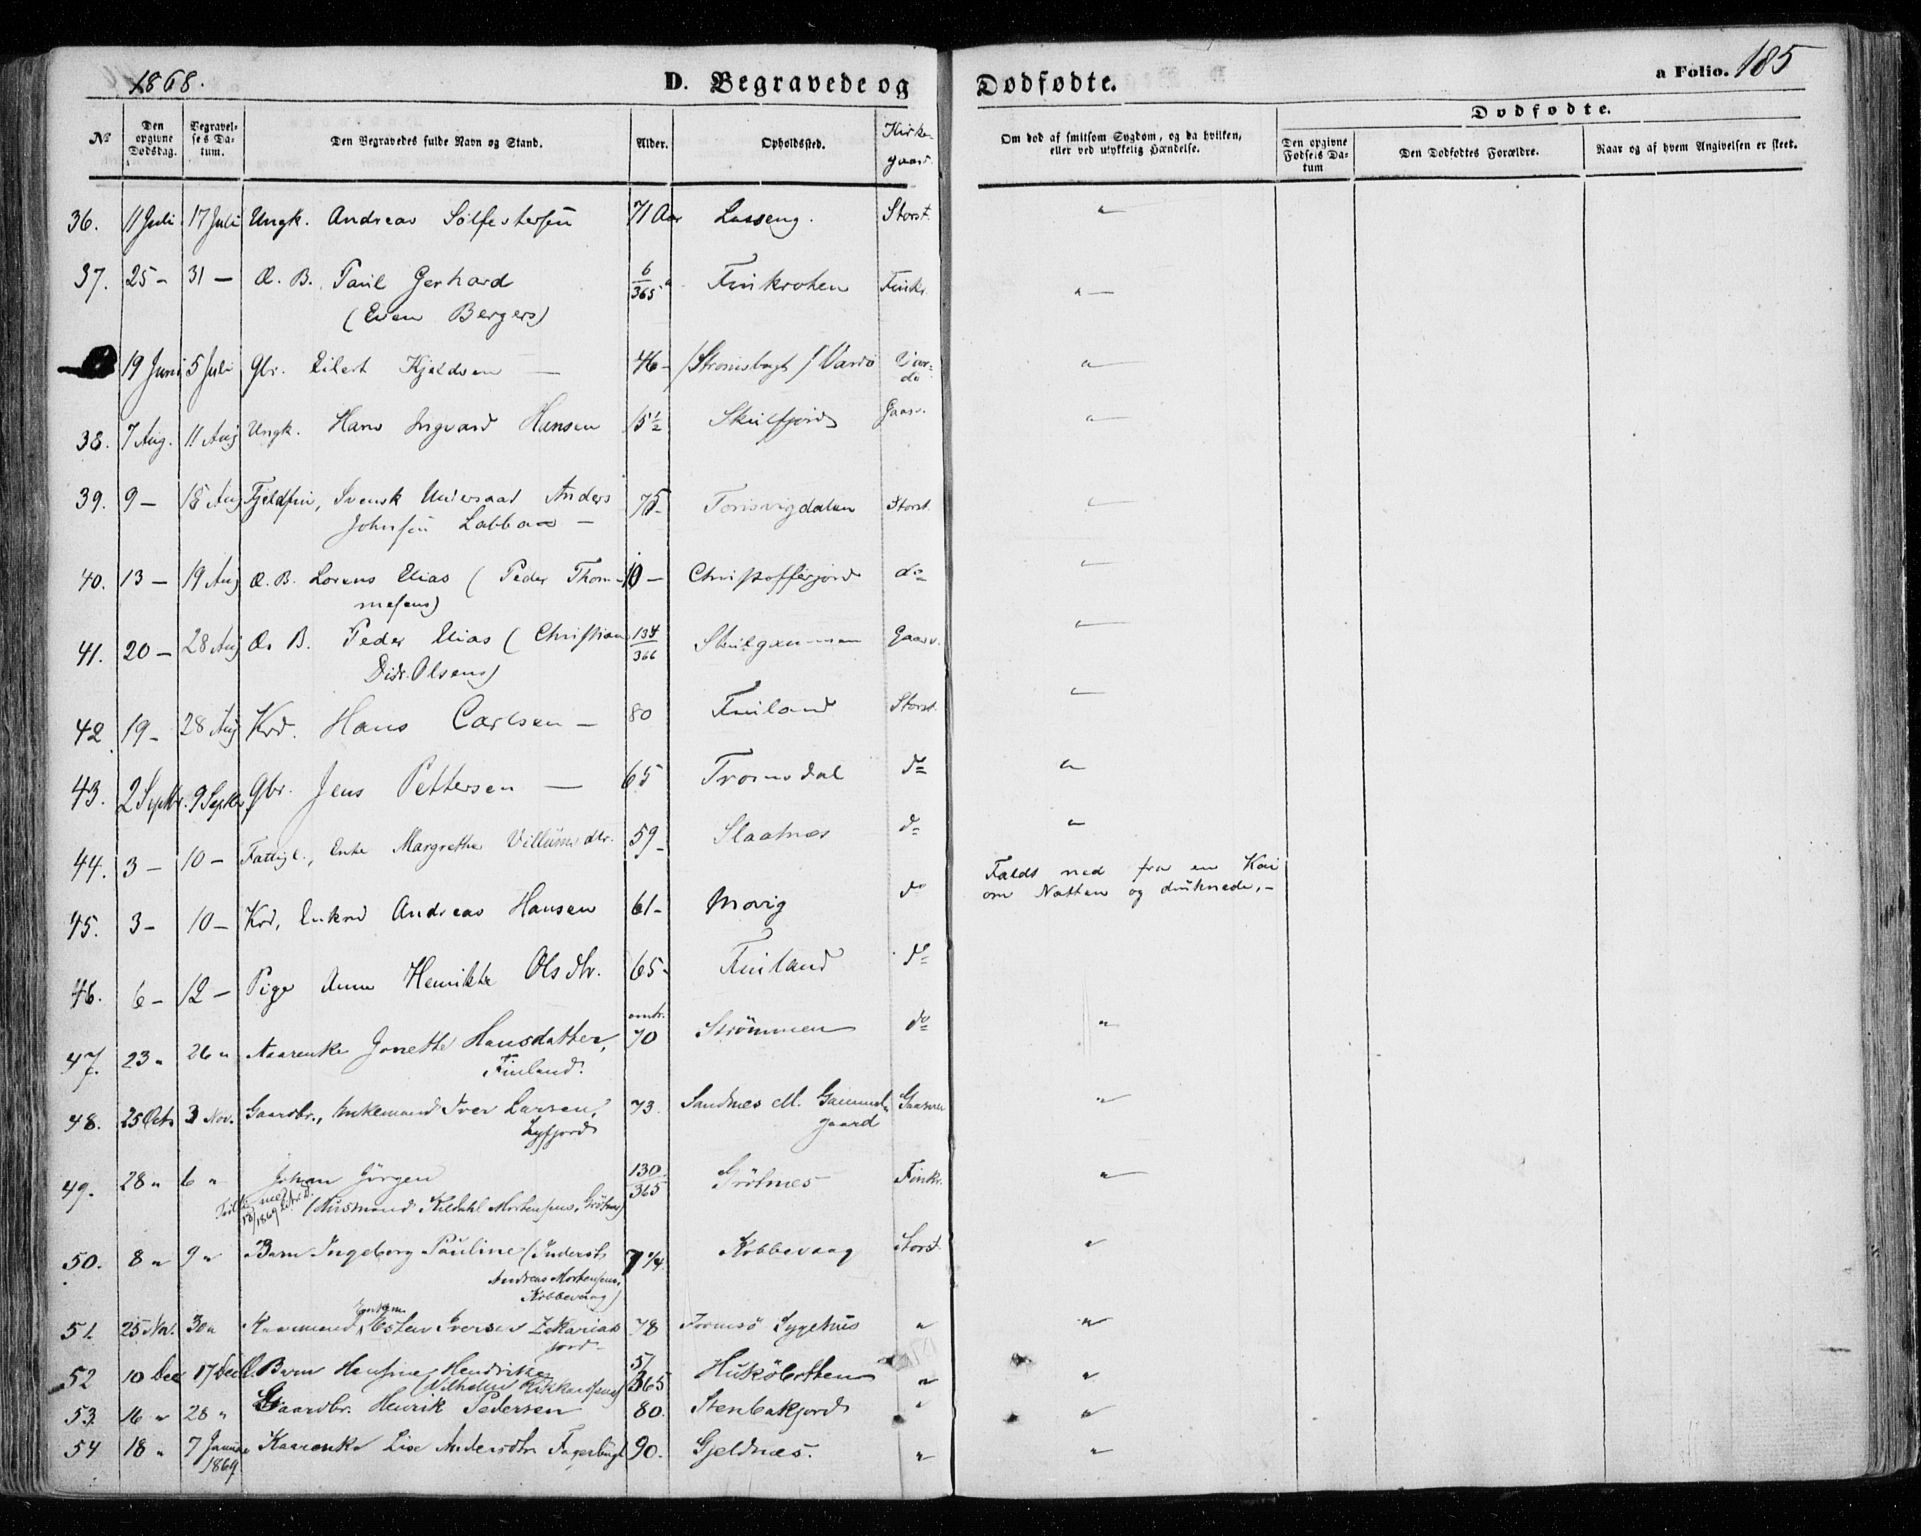 1868.
D. Begravede og Dødfødte.
a Folio. 185
Dødfødte.
No
Den opgivne Dødsdag.
Begravelses Datum.
Den Begravedes fulde Navn og Stand.
Alder.
Opholdssted.
Kirkegaard.
Om død af smitsom Sygdom, og da hvilken, eller ved ulykkelig Hændelse.
Den opgivne Fødsels Datum
Den Dødfødtes Forældre.
Naar og af hvem Angivelsen er skeet.
36. 11 Juli 17 Juli Ungk. Andreas Sølfestersen 71 Aar Storst. "
37. 25 - 31 - Æ. B. Paul Gerhard 6/365 Finkroken Finkr. "
(Even Bergers)
19 Juni 5 Juli Gbr. Eilert Kjeldsen - 46 - (Strømsbugt) Vardø Vardø "
38. 7 Aug. 11 Aug Ungk. Hans Ingvard Hansen 15½ Skulfjord Gaasv. "
39. 9 - 15 Aug Fjeldfin, Svensk Undersaat Anders 75 - Storst. "
Johnsen Labba -
40. 13 - 19 Aug Æ. B. Lorens Elias (Peder Thom- 10 - Christofferjord do "
mesens)
41. 20 - 28 Aug Æ. B. Peder Elias (Christian 134/366 Skulgammen Gaasv. "
Didr. Olsens)
42. 19 - 28 Aug Krd. Hans Carlsen - 80 Finland Storst. "
43. 2 Septbr. 9 Septbr. Gbr. Jens Pettersen - 65 Tromsdal do "
44. 3 - 10 - Fattigl., Enke Margrethe Villumsdtr. 59 - Slaatnes do "
Faldt ned fra en Kai
45. 3 - 10 - Krd, Enkmd Andreas Hansen 61 - Movig do om Natten og druknede, -
46. 6 - 12 - Pige Anne Henrikke Olsdtr. 65 - Finland do
47. 23 " 26 " Kaarenke Jonette Hansdatter, omtr. 70 Strømmen do "
Finland.
48. 25 Octr 3 Nov. Gaardbr., Enkemand Iver Larsen, 73. Sandnes M. Gammelgaard "
Lyfjord
49. 28 " 6 " Johan Jörgen 130/365 Grötnes Finkr. "
(Husmand Kildahl Mortensens, Grötnes)
50. 8 " 9 " Barn Ingeborg Pauline (Inderst 7 ¼. Kobbevaag Storst. "
Andreas Mortensens,
Kobbevaag)
51. 25 Nov. 30 " Kaarmand Enkem. Østen Iversen Zakarias- 78 Tromsö Sygehus " "
fjord
52 10 Dec 17 Dec Barn Hansine Hendrikke 51/365 " "
(Vilhelm Rikkardsens)
53. 16 " 28 " Gaardbr. Henrik Pedersen 80. Stenbakjord " "
54 18 " 7 Januar 1869 Kaarenke Lise Andersdtr Fagerbugt 90. Gjeldnæs. " "